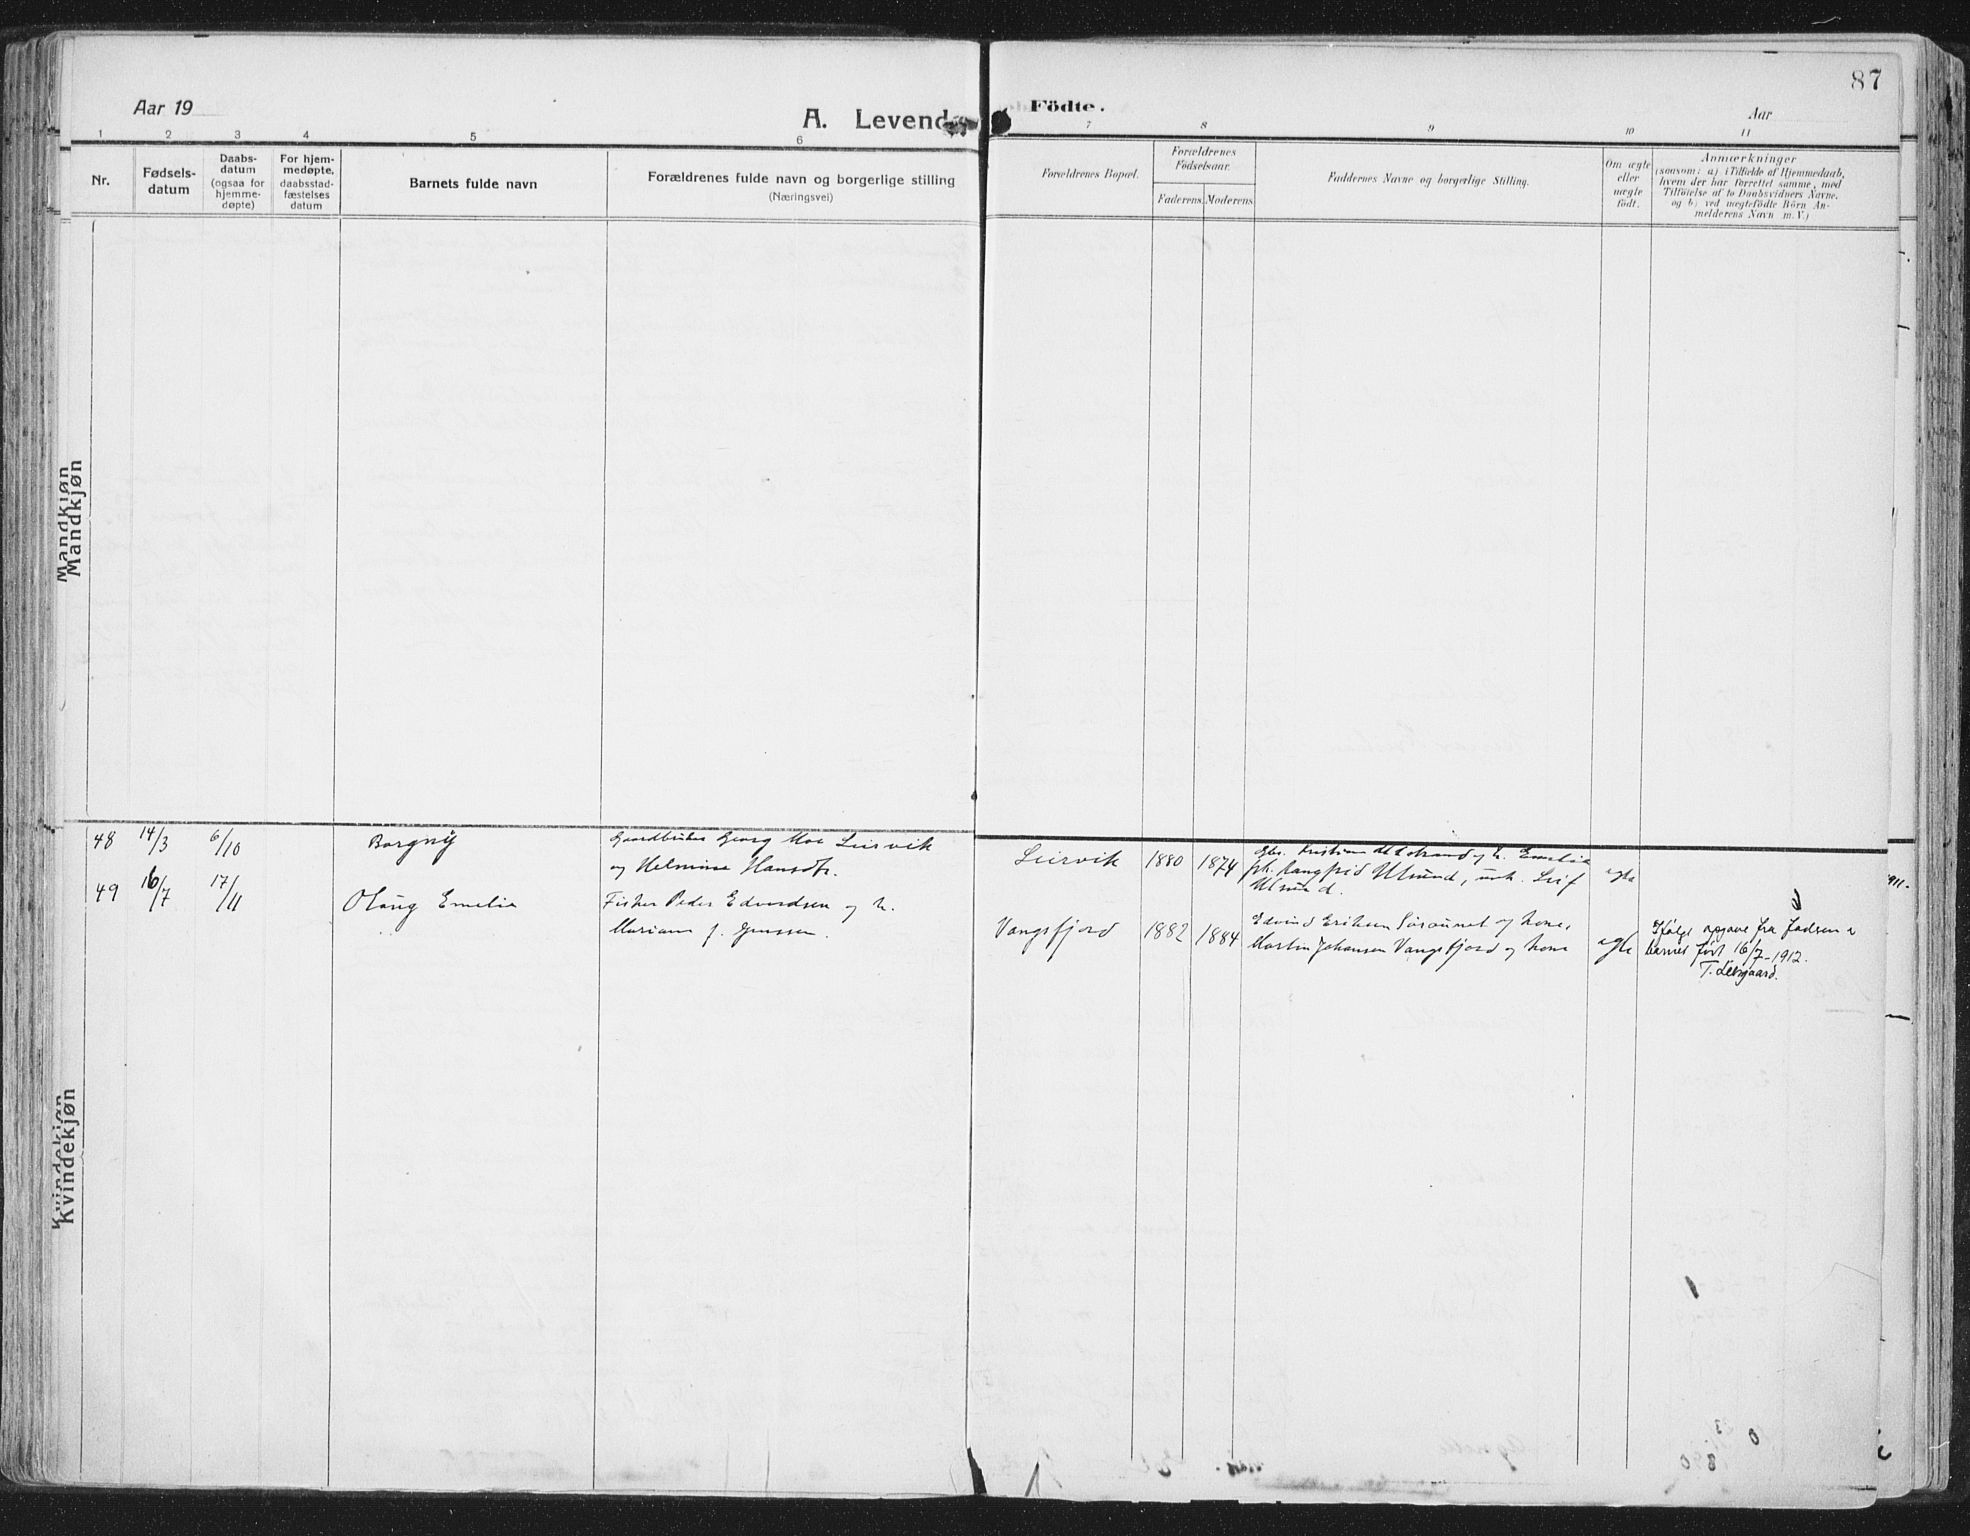 87
Aar 19
A. Levende
Födte.
Aar
1 2 3 4 5 6
7 8 9 10 11
Nr.
Fødsels-
datum
Daabs-
datum
(ogsaa for
hjemme-
døpte)
For hjem-
medøpte,
daabsstad-
fæstelses
datum
Barnets fulde navn
Forældrenes fulde navn og borgerlige stilling
(Næringsvei)
Forældrenes Bopæl.
Forældrenes
Födselsaar.
Faderens. Moderens.
Faddernes Navne og borgerlige Stilling.
Om ægte
eller
uægte
født.
Anmærkninger
(saasom: a) i Tilfælde af Hjemmedaab,
hvem der har forrettet samme, med
Tilføielse af to Daabsvidners Navne.
og b) ved uægtefödte Börn An-
melderens Navn m. V.)
Mandkjøn
Mandkjøn
Kvindekjøn
Kvindekjøn
48 14/3 6/10 Borgny
Gaardbruker Georg Moe Leirvik
og Helmine Hansdtr.
Leirvik 1880 1874
Gbr. Kristian Ulstrand og h. Emelie
pk. Rangfrid Ulsund, unk. Leif
Ulsund.
ægte
49 16/7 17/11 Olaug Emelie
Fisker Peder Edvardsen og h.
Mariane f. Jenssen.
Vangsfjord 1882 1884
Edvind Eriksen Sørsunnet og kone,
Martin Johansen Vangsfjord og kone
ægte
Ifølge opgave fra fadsren er
barnet født 16/7-1912.
T. Lekgaard.
1911-